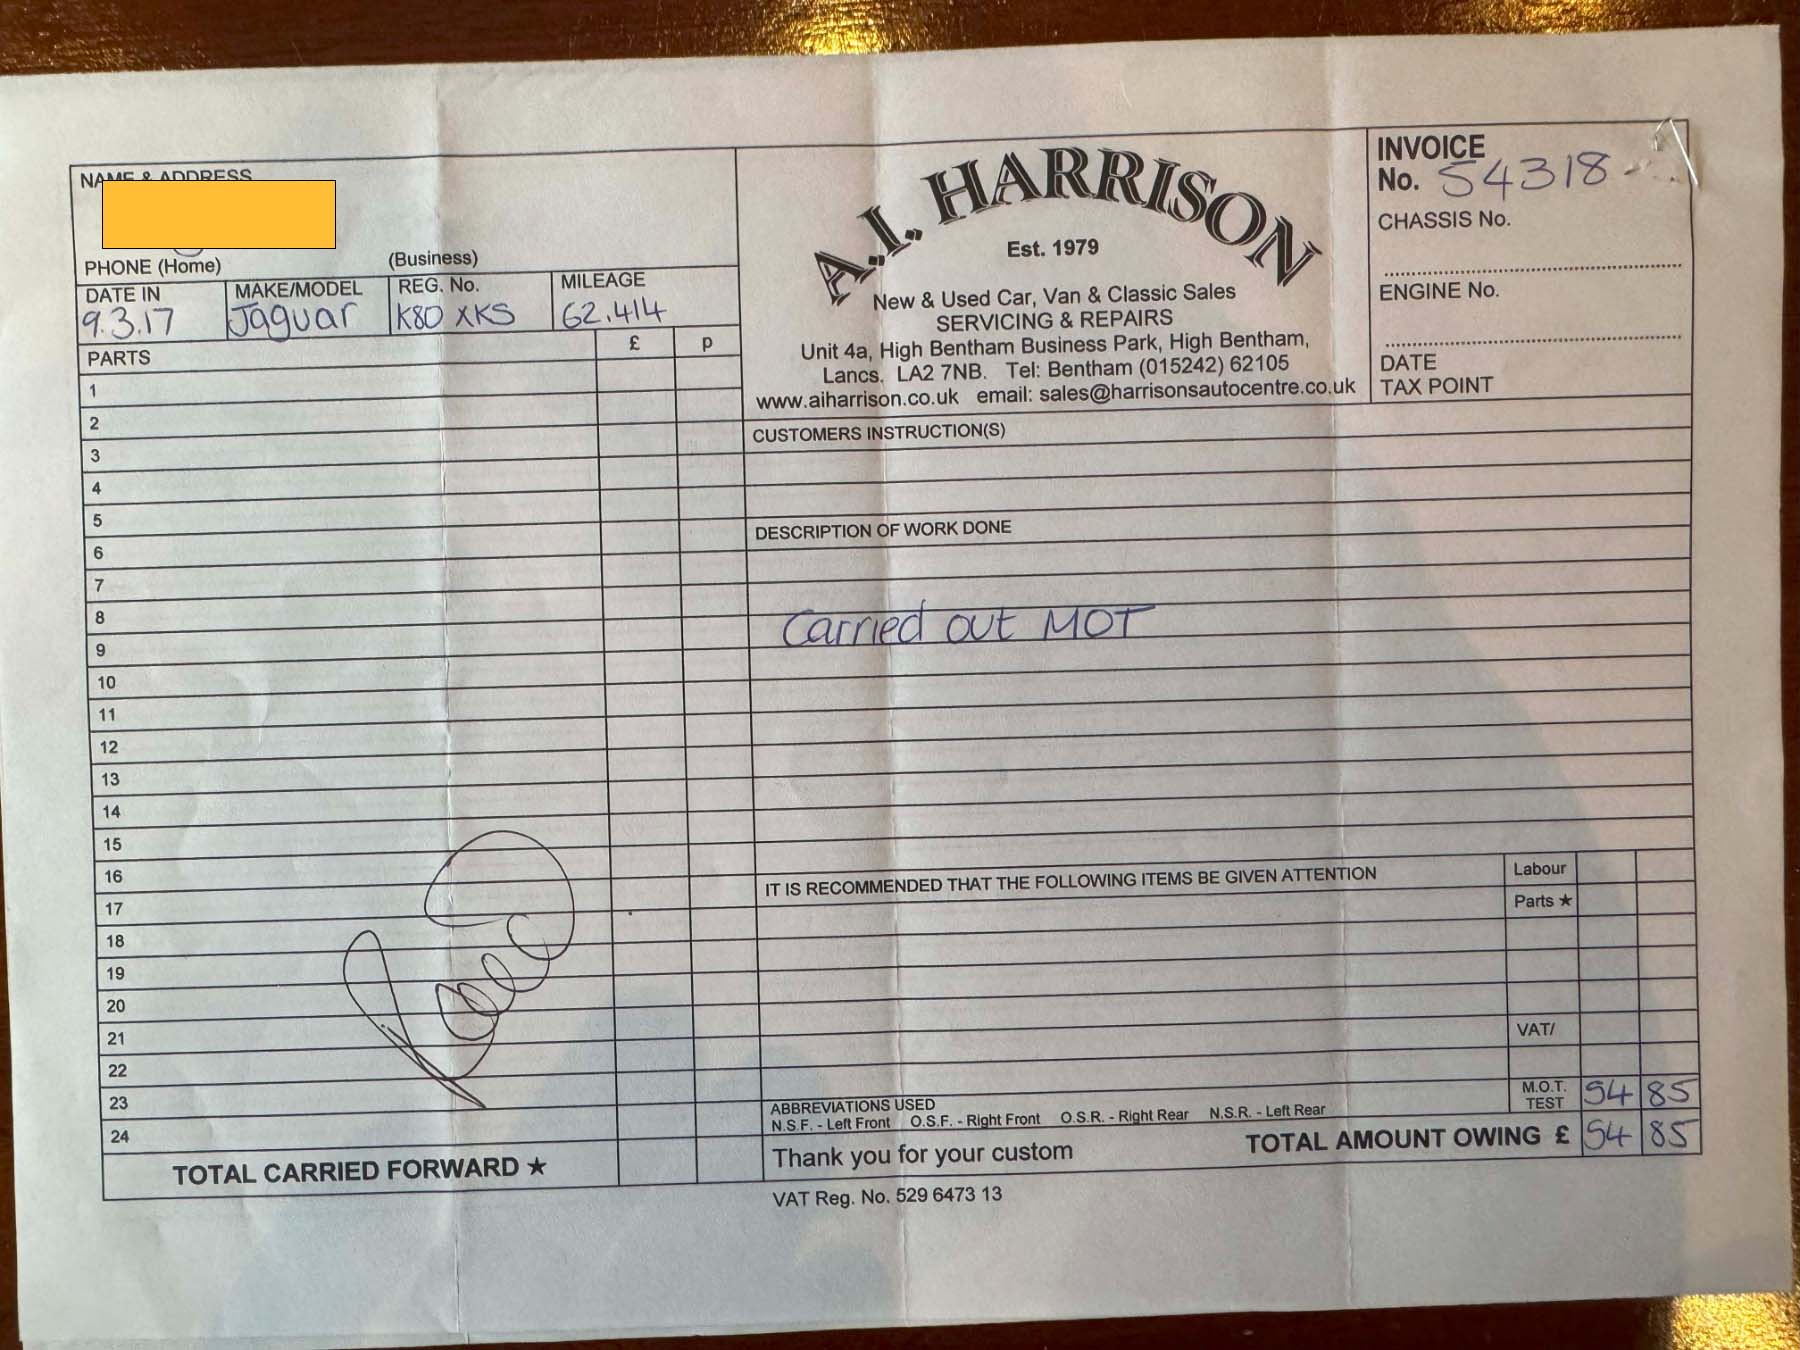 NAME & ADDRESS
PHONE (Home) (Business)
DATE IN MAKE/MODEL REG. No. MILEAGE
9.3.17 Jaguar K80 XKS 62.414
PARTS £ p
1
2
3
4
5
6
7
8
9
10
11
12
13
14
15
16
17
18
19
20
21
22
23
24
TOTAL CARRIED FORWARD ★
A.I. HARRISON
Est. 1979
New & Used Car, Van & Classic Sales
SERVICING & REPAIRS
Unit 4a, High Bentham Business Park, High Bentham,
Lancs. LA2 7NB. Tel: Bentham (015242) 62105
www.aiharrison.co.uk email: sales@harrisonsautocentre.co.uk
INVOICE
No. 54318
CHASSIS No.
ENGINE No.
DATE
TAX POINT
CUSTOMERS INSTRUCTION(S)
DESCRIPTION OF WORK DONE
Carried out MOT
IT IS RECOMMENDED THAT THE FOLLOWING ITEMS BE GIVEN ATTENTION
Labour
Parts ★
VAT/
M.O.T.
TEST 54 85
ABBREVIATIONS USED
N.S.F. - Left Front O.S.F. - Right Front O.S.R. - Right Rear N.S.R. - Left Rear
Thank you for your custom TOTAL AMOUNT OWING £ 54 85
VAT Reg. No. 529 6473 13